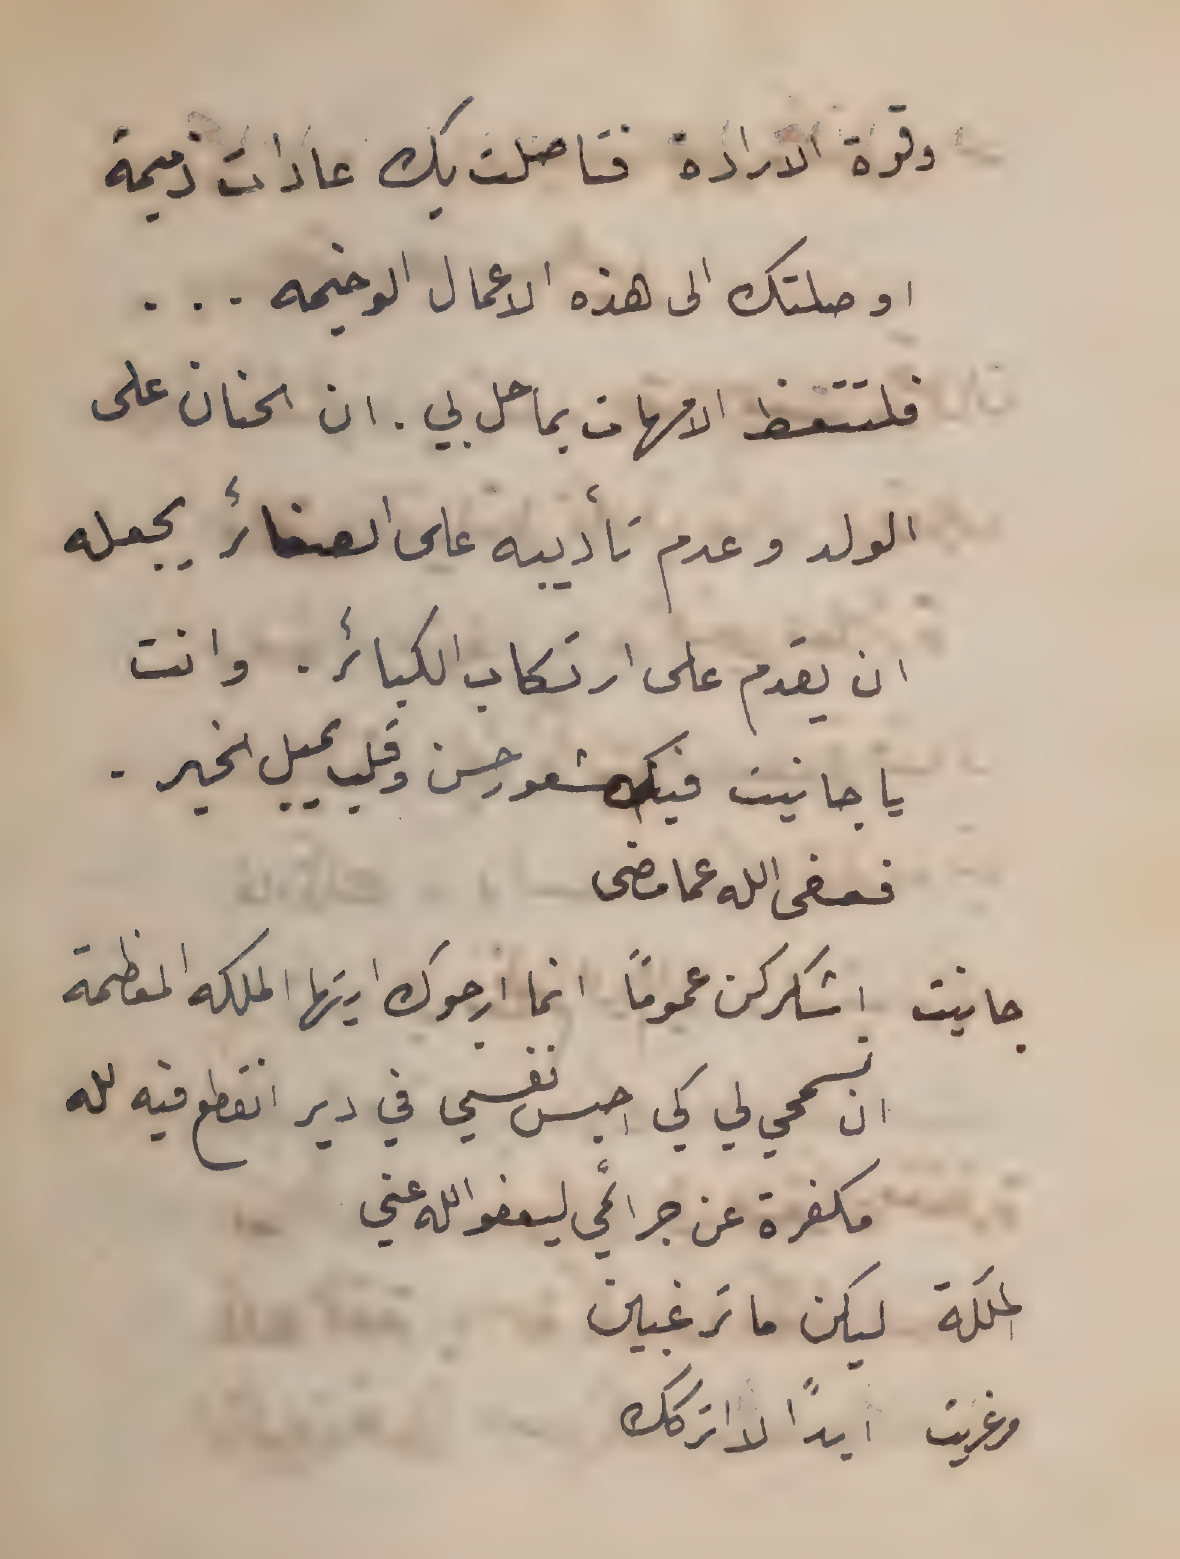 وقوة الارادة فتاصلت بك عادات ذميمة
اوصلتك الى هذه الاعمال الوخيمه ...
فلتتعظ الامهات بما حل بي . ان الحنان على
الولد وعدم تأديبه على الصغائر يجعله
ان يقدم على ارتكاب الكبائر . وانت
يا جانيت فيك شعور حسن وقلب يميل لخير .
فعفى الله عما مضى
جانيت اشكركن عموماً انما ارجوك ايتها الملكه المعظمة
ان تسمحي لي كي احبس نفسي في دير انقطع فيه لله
مكفرة عن جرائمي ليعفو الله عني
الملكة ليكن ما ترغبين
مرغريت ابداً لا اتركك